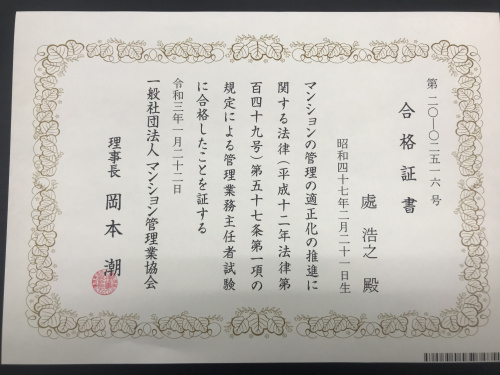 第二〇―〇二五一六号
合格証書
處 浩之 殿
昭和四十七年二月二十一日生
マンションの管理の適正化の推進に
関する法律（平成十二年法律第
百四十九号）第五十七条第一項の
規定による管理業務主任者試験
に合格したことを証する
令和三年一月二十二日
一般社団法人 マンション管理業協会
理事長 岡本 潮